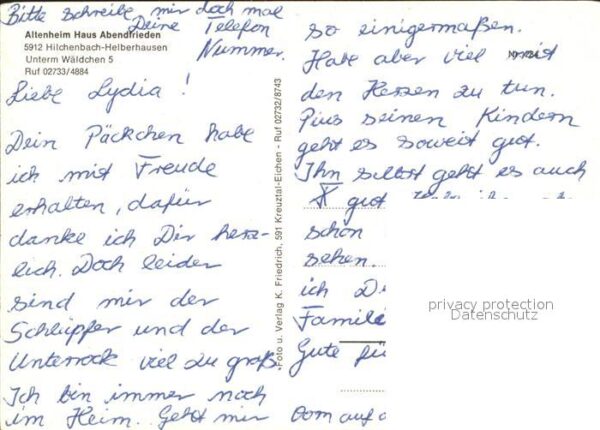 Bitte schreibe mir doch mal
Deine Telefon
Nummer.
Altenheim Haus Abendfrieden
5912 Hilchenbach-Helberhausen
Unterm Wäldchen 5
Ruf 02733/4884
Liebe Lydia!
Dein Päckchen habe
ich mit Freude
erhalten, dafür
danke ich Dir herz-
lich. Doch leider
sind mir der
Schlüpfer und der
Unterrock viel zu groß.
Ich bin immer noch
im Heim. Geht mir
Foto u. Verlag K. Friedrich, 591 Kreuztal-Eichen - Ruf 02732/8743
so einigermaßen.
Habe aber viel mit
den Herzen zu tun.
Pius seinen Kindern
geht es soweit gut.
Ihn selbst geht es auch
gut
schon
sehen.
ich
Familie
Gute für
Oom auf
privacy protection
Datenschutz